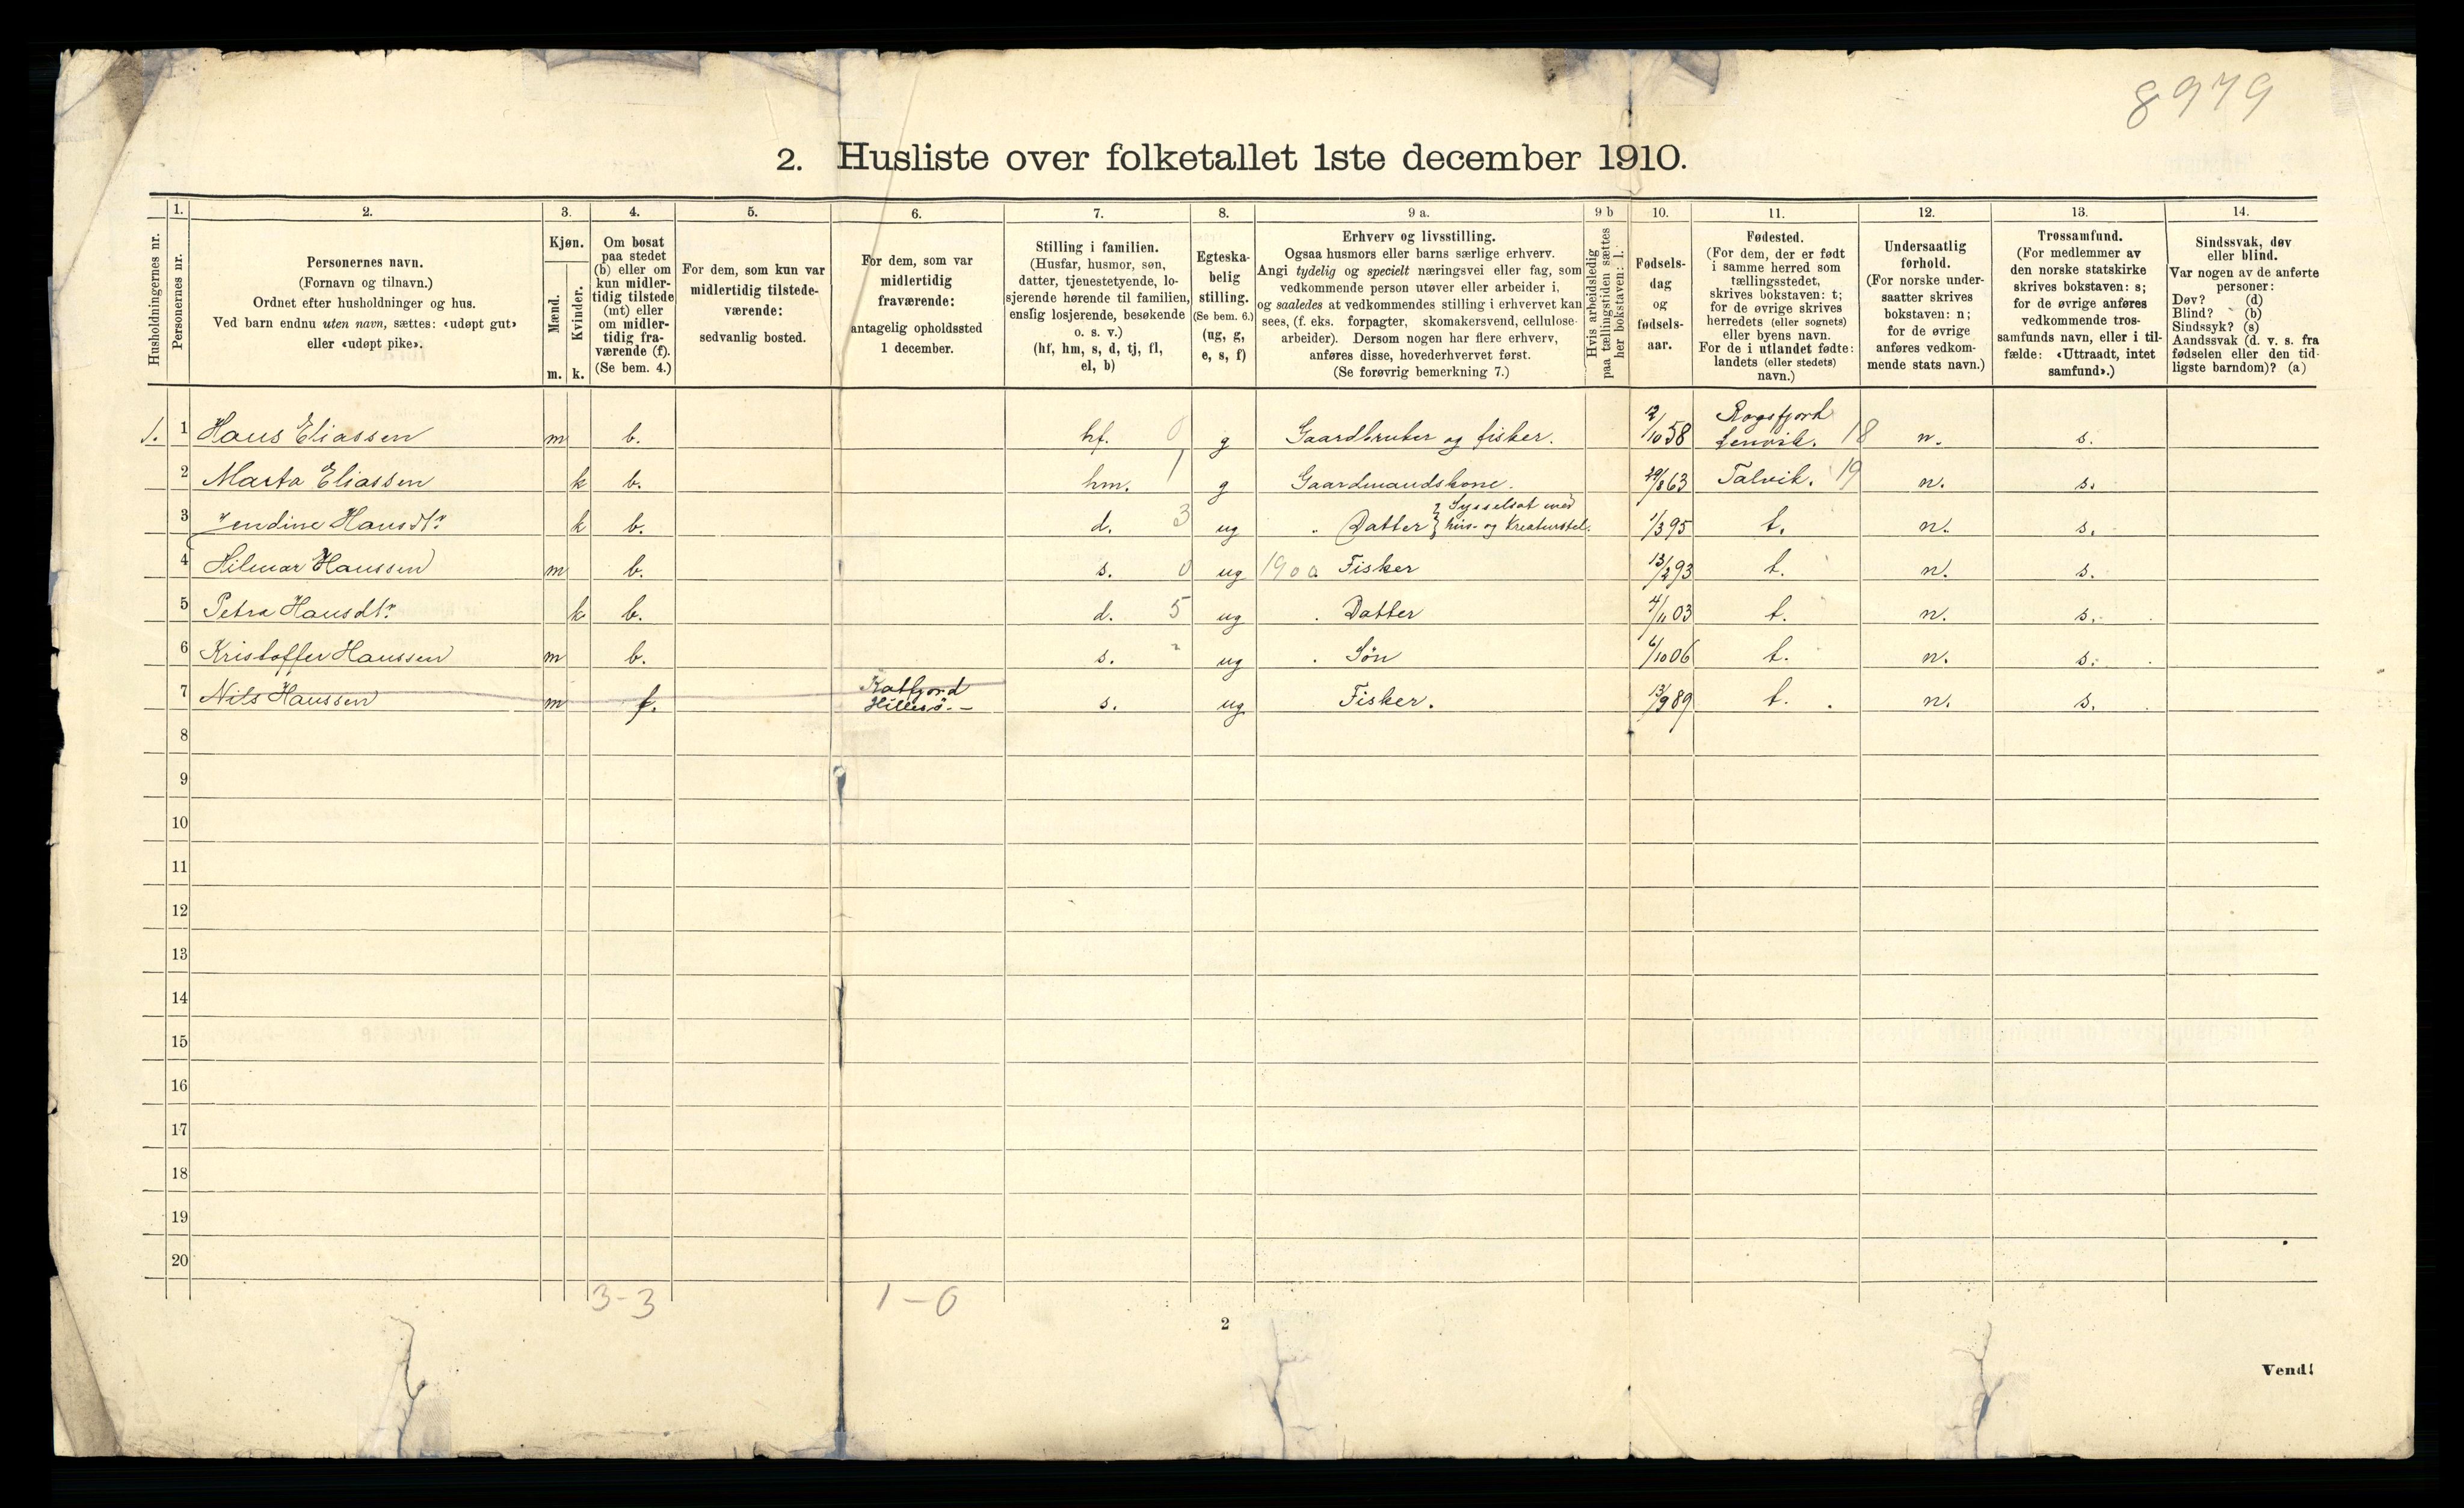 8979
2. Husliste over folketallet 1ste december 1910.
Husholdningernes nr.
1. Personernes nr.
2. Personernes navn.
(Fornavn og tilnavn.)
Ordnet efter husholdninger og hus.
Ved barn endnu uten navn, sættes: «udøpt gut»
eller «udøpt pike».
3. Kjøn.
Mænd. m.
Kvinder. k.
4. Om bosat
paa stedet
(b) eller om
kun midler-
tidig tilstede
(mt) eller
om midler-
tidig fra-
værende (f).
(Se bem. 4.)
5. For dem, som kun var
midlertidig tilstede-
værende:
sedvanlig bosted.
6. For dem, som var
midlertidig
fraværende:
antagelig opholdssted
1 december.
7. Stilling i familien.
(Husfar, husmor, søn,
datter, tjenestetyende, lo-
sjerende hørende til familien,
enslig losjerende, besøkende
o. s. v.)
(hf, hm, s, d, tj, fl,
el, b)
8. Egteska-
belig
stilling.
(Se bem. 6.)
(ug, g,
e, s, f)
9 a. Erhverv og livsstilling.
Ogsaa husmors eller barns særlige erhverv.
Angi tydelig og specielt næringsvei eller fag, som
vedkommende person utøver eller arbeider i,
og saaledes at vedkommendes stilling i erhvervet kan
sees, (f. eks. forpagter, skomakersvend, cellulose-
arbeider). Dersom nogen har flere erhverv,
anføres disse, hovederhvervet først.
(Se forøvrig bemerkning 7.)
9 b Hvis arbeidsledig
paa tællingstiden sættes
her bokstaven: l.
10. Fødsels-
dag
og
fødsels-
aar.
11. Fødested.
(For dem, der er født
i samme herred som
tællingsstedet,
skrives bokstaven: t;
for de øvrige skrives
herredets (eller sognets)
eller byens navn.
For de i utlandet fødte:
landets (eller stedets)
navn.)
12. Undersaatlig
forhold.
(For norske under-
saatter skrives
bokstaven: n;
for de øvrige
anføres vedkom-
mende stats navn.)
13. Trossamfund.
(For medlemmer av
den norske statskirke
skrives bokstaven: s;
for de øvrige anføres
vedkommende tros-
samfunds navn, eller i til-
fælde: «Uttraadt, intet
samfund».)
14. Sindssvak, døv
eller blind.
Var nogen av de anførte
personer:
Døv? (d)
Blind? (b)
Sindssyk? (s)
Aandssvak (d. v. s. fra
fødselen eller den tid-
ligste barndom)? (a)
1. 1 Hans Eliassen m b. hf. 0 g Gaardbruker og fisker. 12/10 58 Rogsfjord Lenvik. 18 n. s.
2 Marta Eliassen k b. hm. 1 g Gaardmandskone. 29/8 63 Talvik. 19 n. s.
3 Hansdtr k b. d. 3 ug Datter } Sysselsat med hus- og Kreaturstel. 1/3 95 t. n. s.
4 Hilmar Hanssen m b. s. 0 ug 1900 Fisker 13/2 93 t. n. s.
5 Petra Hansdtr. k b. d. 5 ug Datter 4/11 03 t. n. s.
6 Kristoffer Hanssen m b. s. ug Søn 6/10 06 t. n. s.
7 Nils Hanssen m f. Katfjord Hillesö. s. ug Fisker. 13/9 89 t. n. s.
8
9
10
11
12
13
14
15
16
17
18
19
20
3-3 1-0
2
Vend!